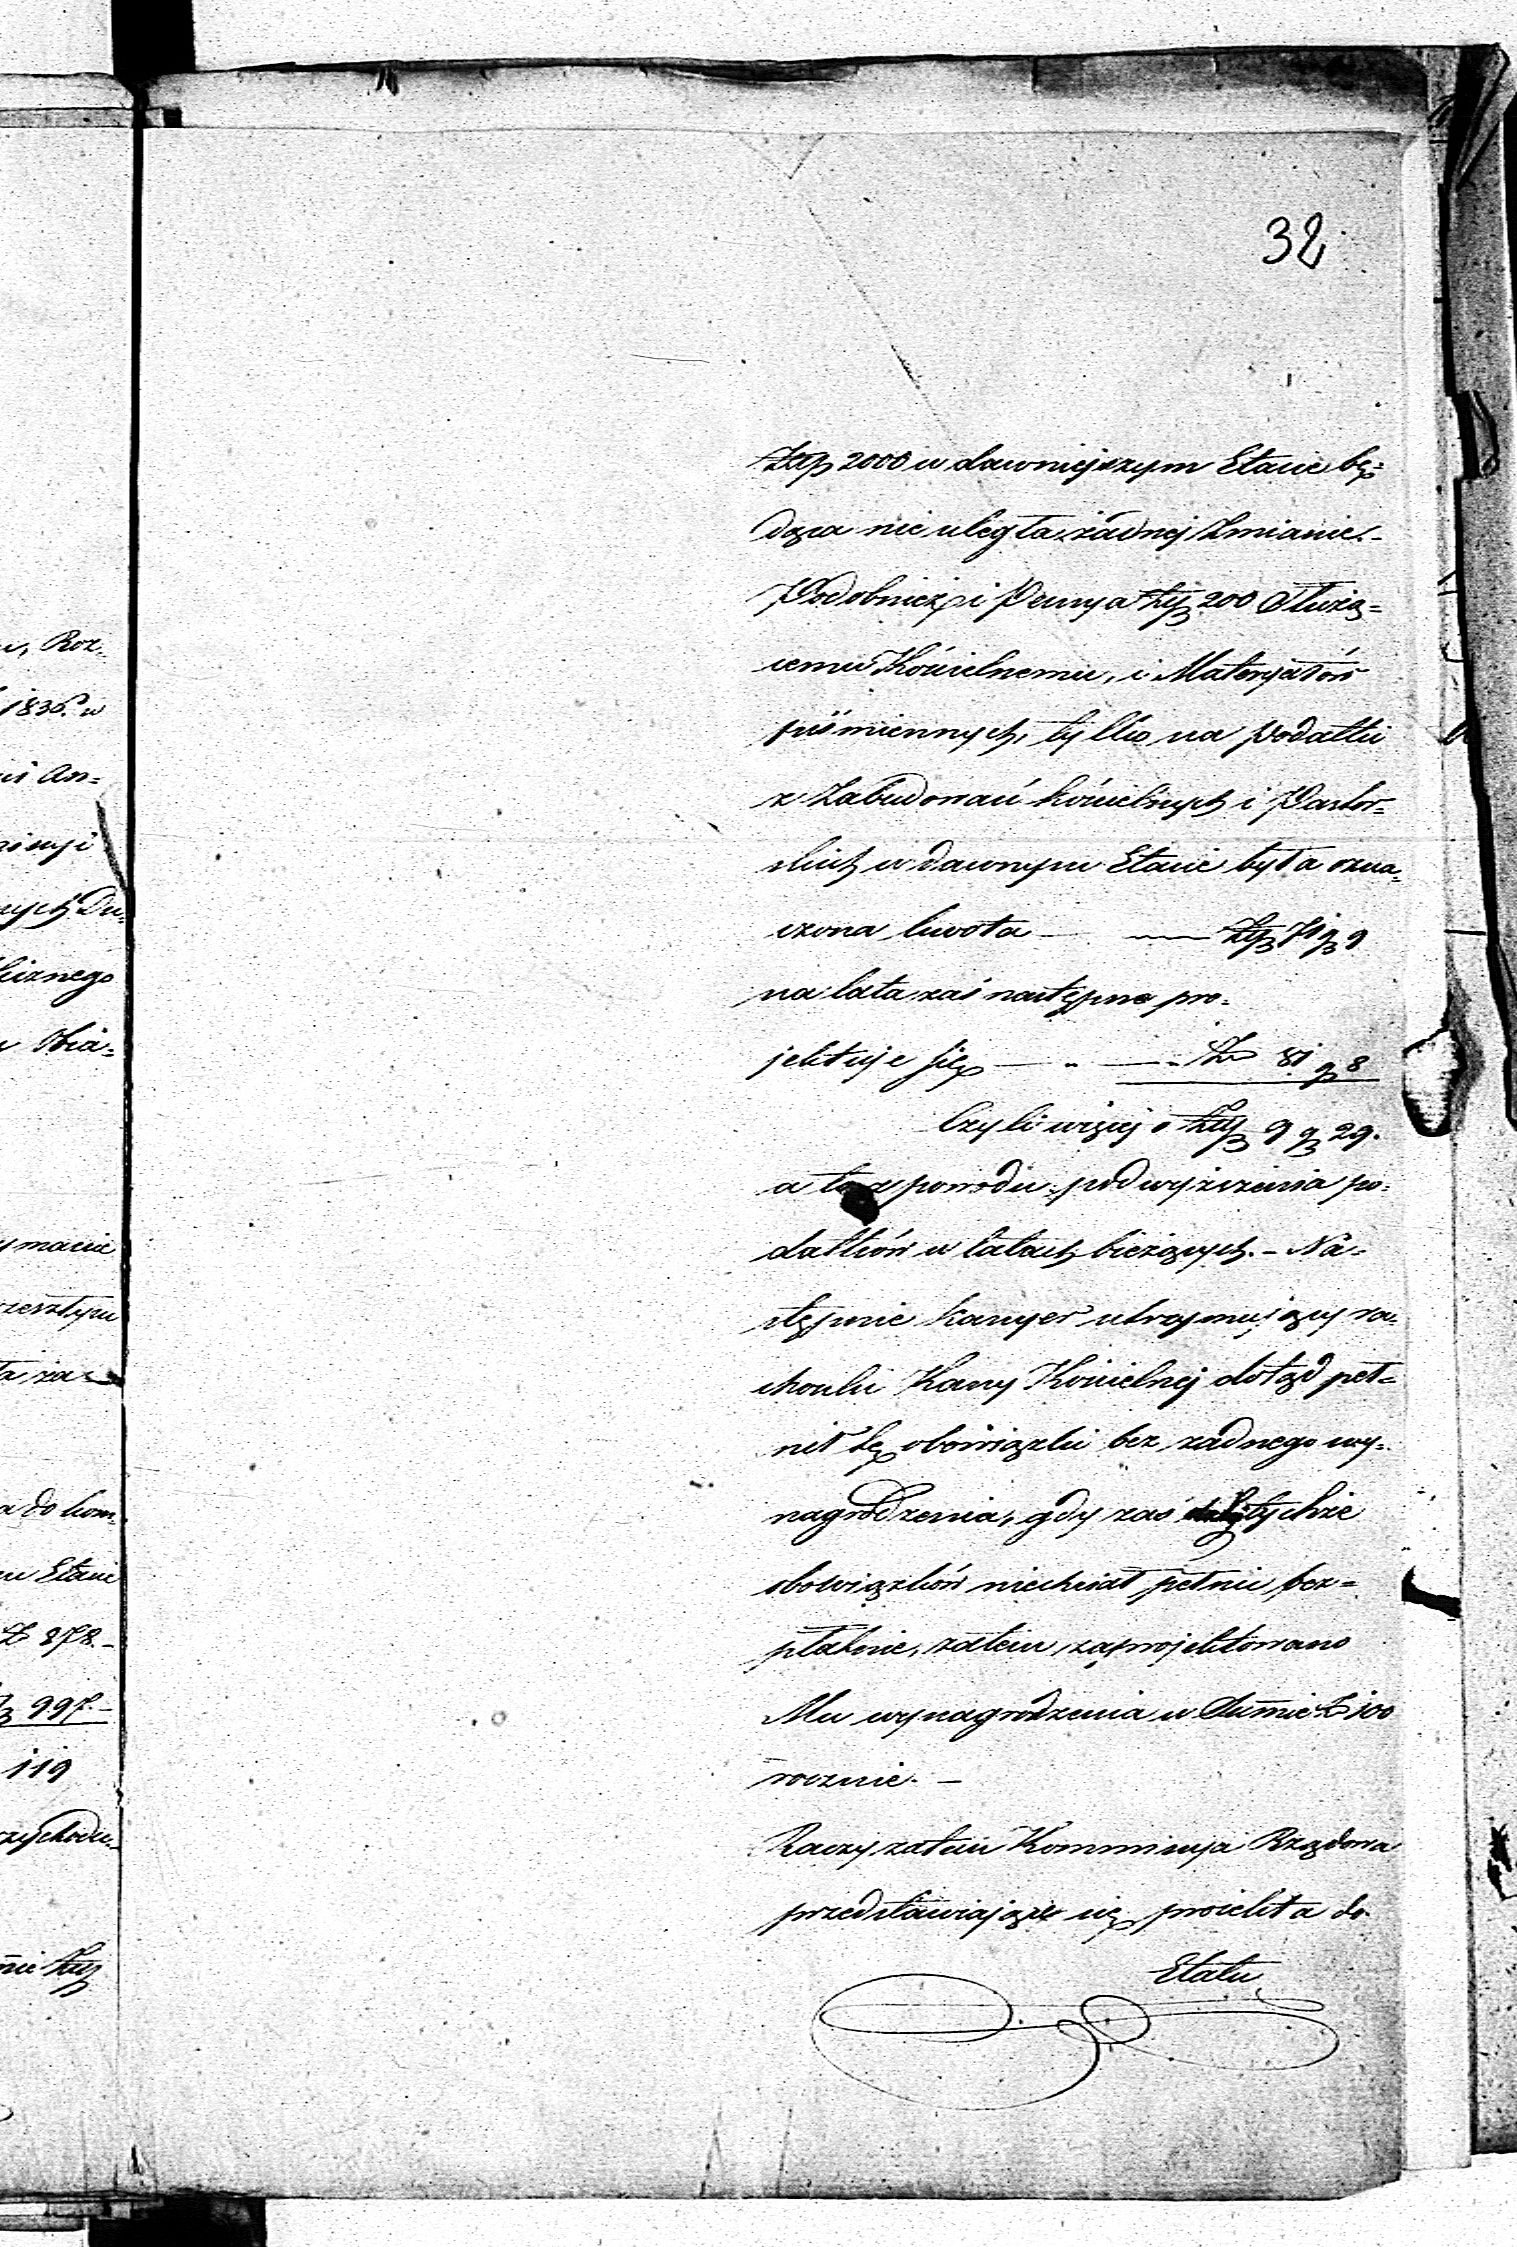 32
Złp 2000 w dawniejszym Etacie bę=
dąca nie uległa żadnej zmianie.-
Podobnież i Pensya Złp 200 Służą=
cemu Kościelnemu, i Materyałów
piśmiennych, tylko na podatki
z Zabudowań kościelnych i Pastor=
skich w dawnym Etacie była ozna=
czona kwota — Złp 71 g 9
na lata zaś następne pro=
jektuje się — „ — Złp 81 g 8
Czyli więcej o Złp 9 g 29.
a to z powodu podwyższenia po=
datków w latach bieżących. - Na=
stępnie Kassyer utrzymujący ra=
chunki Kassy Kościelnej dotąd peł=
nił te obowiązki bez żadnego wy=
nagrodzenia, gdy zaś tychże
obowiązków niechciał pełnić bez=
płatnie, zatem zaprojektowano
Mu wynagrodzenia w Summie Zł 100
rocznie. —
Raczy zatem Kommissyja Rządowa
przedstawiające się projekta do
Etatu
, Roz=
1836. w
An=
nych Du=
Obia=
ymacie
zesztym
ta za
a do kom=
Etacie
Zł 878.-
997.-
119
rzychodu
Złp